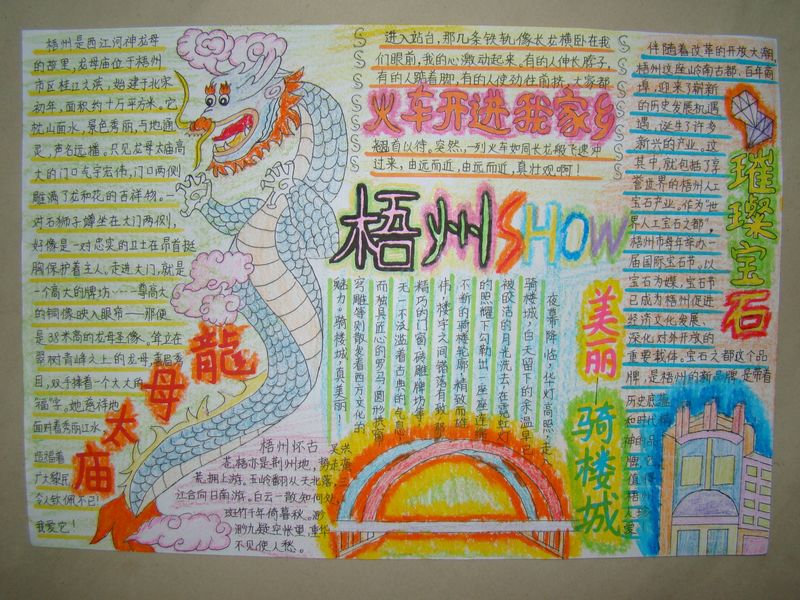 梧州是西江河神龙母
的故里,龙母庙位于梧州
市区桂江之滨,始建于北宋
初年,面积约十万平方米。它
枕山面水,景色秀丽,与地涵
灵,声名远播。只见龙母太庙高
大的门口气宇宏伟,门口两侧
雕满了龙和花的吉祥物。一
对石狮子蹲坐在大门两侧,
好像是一对忠实的卫士在昂首挺
胸保护着主人。走进大门,就是
一个高大的牌坊……尊高大
的铜像映入眼帘——那便
是38米高的龙母圣像。耸立在
翠树青峰之上的龙母,慈眉善
目,双手捧着一个大大的
“福”字。她慈祥地
面对着秀丽江水
造福着
广大黎民,
令人钦佩不已!
我爱它!
龍母太庙
进入站台,那几条铁轨像长龙横卧在我
们眼前,我的心激动起来,有的人伸长脖子,
有的人踮着脚,有的人使劲往前挤,大家都
火车开进我家乡
翘首以待。突然,一列火车如同长龙般飞速冲
过来,由远而近,由远而近,真壮观啊!
梧州SHOW
夜幕降临,华灯高照,走入
骑楼城,白天留下的余温早已
被皎洁的月光洗去,在霓虹灯
的照耀下勾勒出一座座连绵
不断的骑楼轮廓,精致而雄
伟,楼宇之间错落有致,那
精巧的门窗,砖雕牌坊等
无一不渗滥着古典的气息,
而独具匠心的罗马圆形拱窗
穹雕等则散发着西方文化的
魅力。骑楼城,真美丽!
美丽—骑楼城
梧州怀古 吴兴
苍梧亦是荆州地,势走蛮
荒拥上游。五岭翻从天北落,三
江合向日南游。白云一散知何处,
斑竹千年倚暮秋。渺
渺九疑空怅望,重华
不见使人愁。
伴随着改革的开放大潮,
梧州这座岭南古都,百年商
埠,迎来了崭新
的历史发展机遇
遇,诞生了许多
新兴的产业。这
其中,就包括了享
誉世界的梧州人工
宝石产业。作为“世
界人工宝石之都”,
梧州市每年举办一
届国际宝石节。以
宝石为媒,宝石节
已成为梧州促进
经济文化发展、
深化对外开放的
重要载体。宝石之都这个品
牌,是梧州的新品牌,是带有
历史底蕴
和时代精
神的品
牌,
值得
梧州人
璀璨宝石